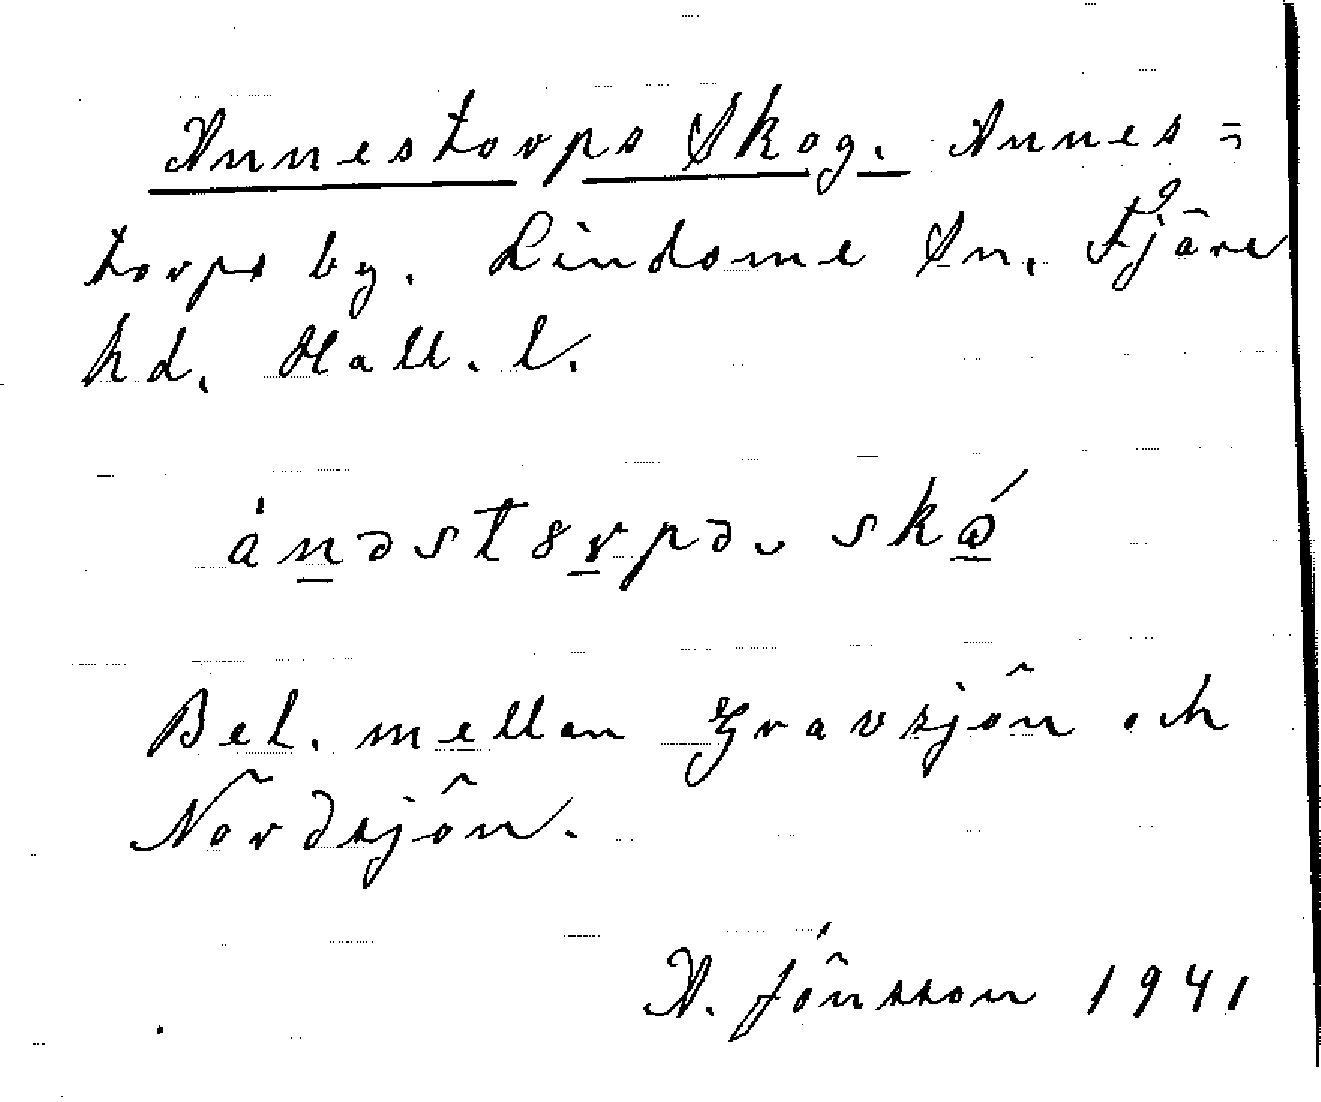 Annestorps Skog. Annes=
torps by. Lindome Sn. Fjäre
hd. Hall. l.
Bel. mellan Gravsjön och
Nordsjön.
A. Jönsson 1941